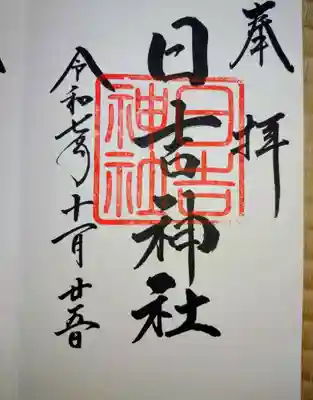 奉拝
日吉神社
日吉神社
令和七年十一月廿五日